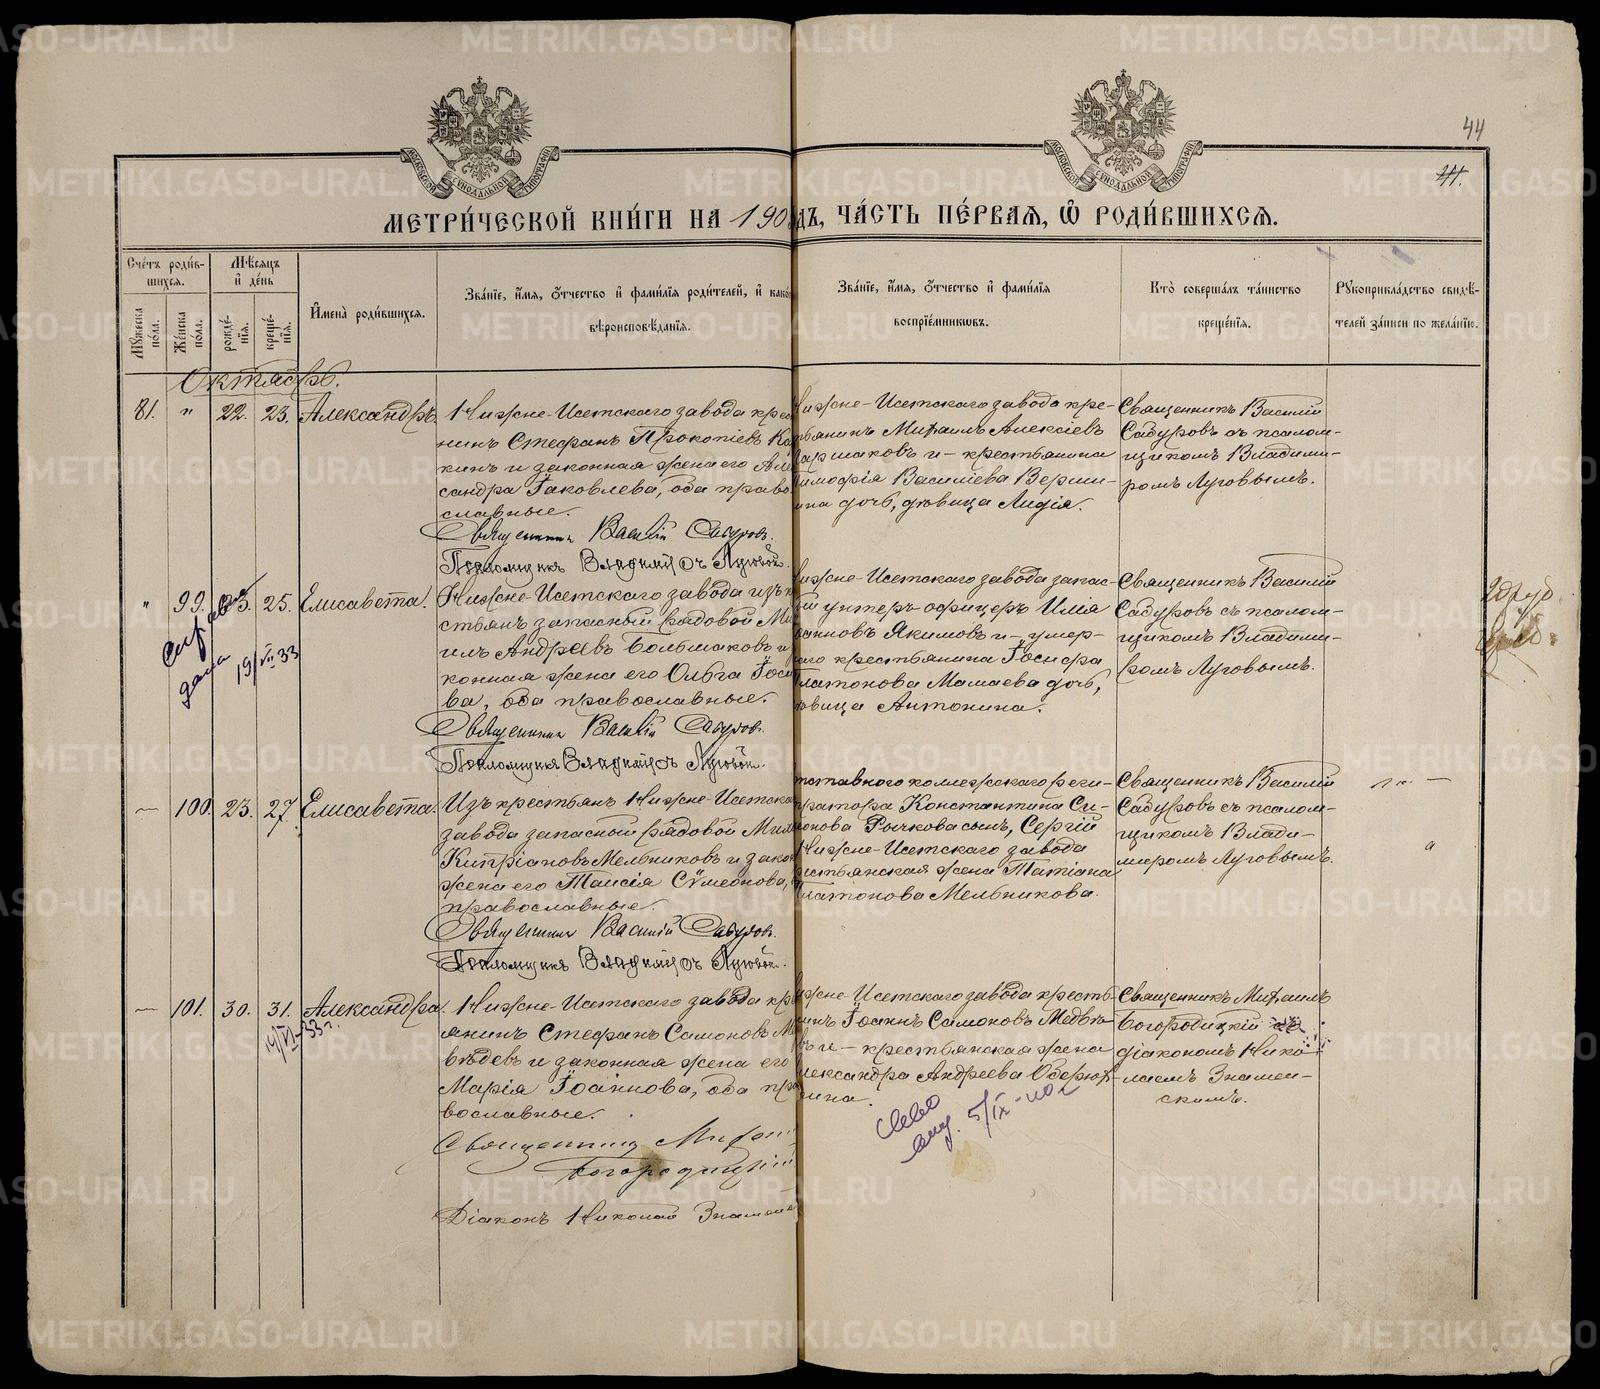 44
41.
МОСКОВСКОЙ СѴНОДАЛЬНОЙ ТИПОГРАФІИ
МОСКОВСКОЙ СѴНОДАЛЬНОЙ ТИПОГРАФІИ
МЕТРИ́ЧЕСКОЙ КНИ́ГИ НА 190 ДЪ, ЧА́СТЬ ПЕ́РВАЯ, Ѡ РОДИ́ВШИХСЯ.
Сче́тъ роди́в-
шихся.
Мѣ́сяцъ
и де́нь
Му́жеска по́ла.
Же́нска по́ла.
рожде́-
нія.
креще́-
нія.
Имена̀ роди́вшихся.
Зва́ніе, и́мя, о́тчество и фами́лія роди́телей, и како́
вѣроисповѣ́данія.
Зва́ніе, и́мя, о́тчество и фами́лія
воспріе́мниковъ.
Кто̀ соверша́лъ та́инство
креще́нія.
Рукоприкла́дство свидѣ́-
телей за́писи по жела́нію.
Октябрь.
81. " 22. 23. Александръ.
Нижне-Исетскаго завода крес
нинъ Стефанъ Прокопіевъ Ка
кинъ и законная жена его Але
сандра Іаковлева, оба право
славные.
Священникъ Василій Сабуровъ.
Псаломщикъ Владиміръ Луговой.
Нижне-Исетскаго завода кре-
стьянинъ Михаилъ Алексіевъ
аршаковъ и - крестьянина
имофія Василіева Верши-
ина дочь, дѣвица Лидія.
Священникъ Василій
Сабуровъ съ псалом-
щикомъ Владими-
ромъ Луговымъ.
" 99. 23. 25. Елисавета.
справка
дана 19/VII 33
Нижне-Исетскаго завода изъ к
стьянъ запасный рядовой Ми
илъ Андреевъ Большаковъ и
конная жена его Ольга Іоси
ва, оба православные.
Священникъ Василій Сабуровъ.
Псаломщикъ Владиміръ Луговой.
Нижне-Исетскаго завода запас-
ый унтеръ-офицеръ Илія
оанновъ Якимовъ и - умер-
аго крестьянина Іосифа
латонова Мамаева дочь,
ѣвица Антонина.
Священникъ Василій
Сабуровъ съ псалом-
щикомъ Владими-
ромъ Луговымъ.
— 100. 23. 27. Елисавета.
Изъ крестьянъ Нижне-Исетска
завода запасный рядовой Миха
Кипріановъ Мельниковъ и зако
жена его Таисія Сѵмеонова,
православные.
Священникъ Василій Сабуровъ.
Псаломщикъ Владиміръ Луговой.
тставного коллежскаго реги-
тратора Константина Си-
онова Рычкова сынъ, Сергій
Нижне-Исетскаго завода
естьянская жена Татіана
латонова Мельникова.
Священникъ Василій
Сабуровъ съ псалом-
щикомъ Влади-
миромъ Луговымъ.
— 101. 30. 31. Александра.
Нижне-Исетскаго завода кре
янинъ Стефанъ Самоновъ М
вѣдевъ и законная жена его
Марія Іоаннова, оба пра
вославные.
Священникъ Михаилъ
Богородицкій
Діаконъ Николай Знамен
ижне-Исетскаго завода кресть-
инъ Іоаннъ Самоновъ Медвѣ-
въ и - крестьянская жена
лександра Андреева Оберюх-
ина.
5/IX-40 г
Священникъ Михаилъ
Богородицкій съ
діакономъ Нико-
лаемъ Знамен-
скимъ.
METRIKI.GASO-URAL.RU